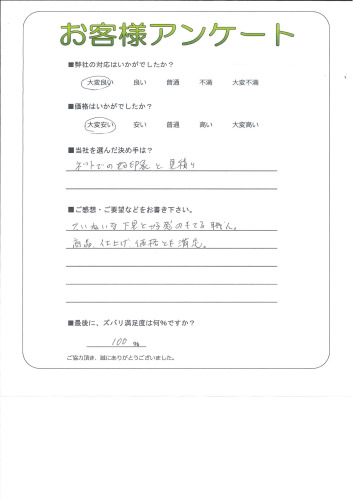 お客様アンケート
■弊社の対応はいかがでしたか?
大変良い 良い 普通 不満 大変不満
■価格はいかがでしたか?
大変安い 安い 普通 高い 大変高い
■当社を選んだ決め手は?
ネットでの初印象と見積り
■ご感想・ご要望などをお書き下さい。
ていねいな下見と好感のもてる職人。
商品、仕上げ、価格とも満足。
■最後に、ズバリ満足度は何%ですか?
100 %
ご協力頂き、誠にありがとうございました。